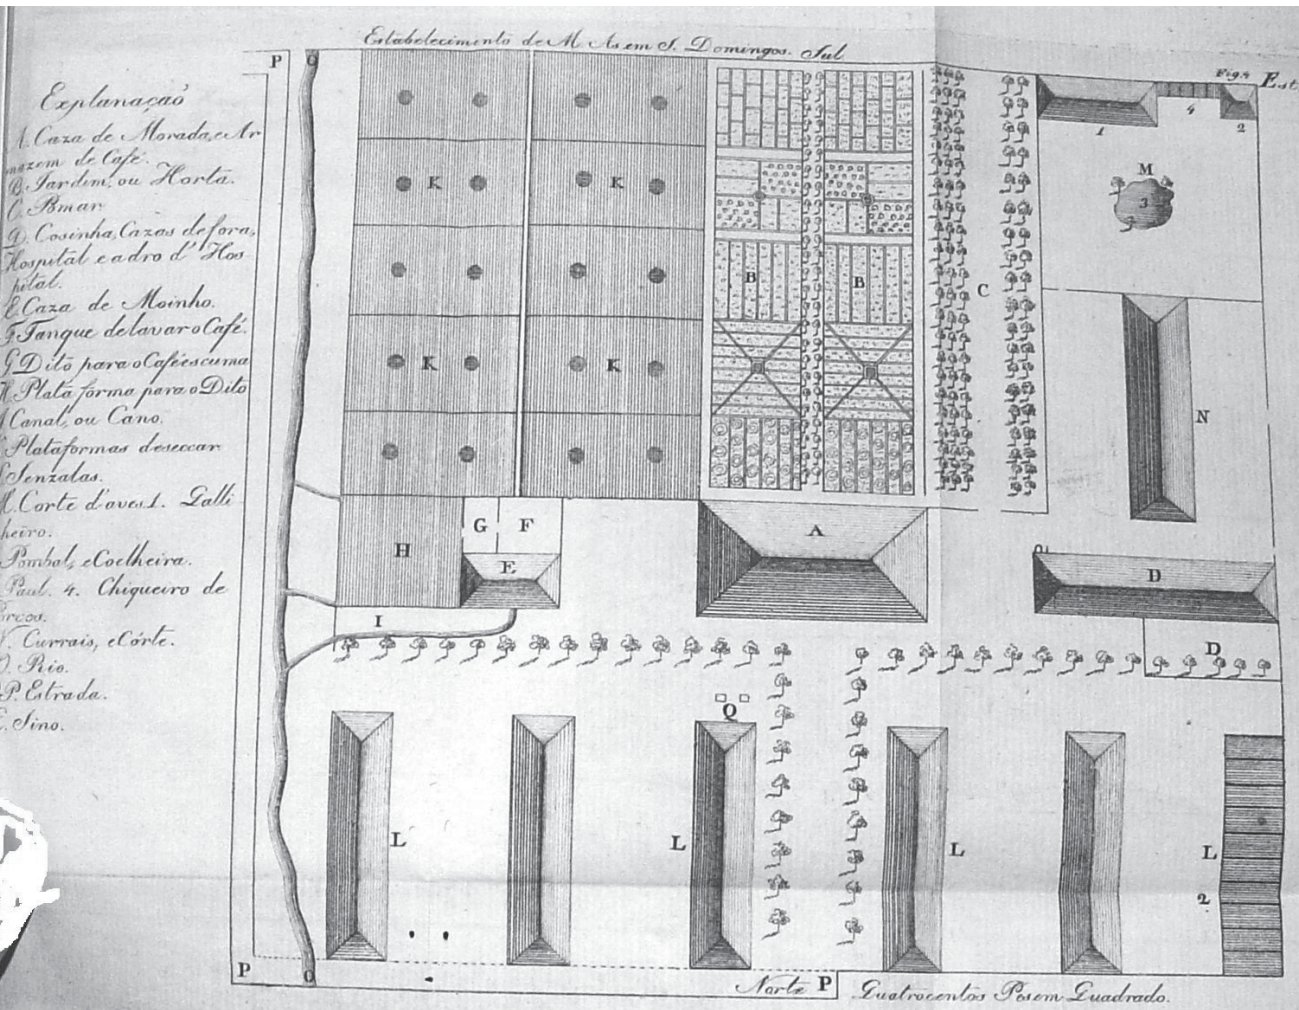 Estabelecimento de M. As em S. Domingos. Sul
Fig. 4 Est
Explanaçaõ
A. Caza de Morada, e Ar
mazem de Café.
B. Jardim, ou Horta.
C. Pomar
D. Cosinha, Cazas de fora,
Hospital e adro d'Hos
pital.
E. Caza de Moinho.
F. Tanque de lavar o Café.
G. Dito para o Café escuma
H. Plata forma para o Dito
I Canal, ou Cano.
Plataformas de seccar
Senzalas.
M. Corte d'aves 1. Galli
nheiro.
Pombal, e Coelheira.
Paul. 4. Chiqueiro de
Porcos.
N. Currais, e Córte.
O. Rio.
P. Estrada.
Q. Sino.
P O
1 4 2
M
3
K K
B B
C
K K
N
G F
H E
A
D
I
D
Q
L L L L
2
P O
Norte P Quatrocentos Pes em Quadrado.